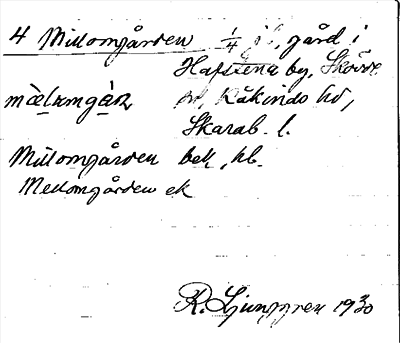 4 Millomgården 1/4 gård i
Hafstena by, Skövde
mæ̀lumgàɳ Kåkinds hd,
Skarab. l.
Millomgården bek, hb.
Mellomgården ek
R. Ljunggren 1930